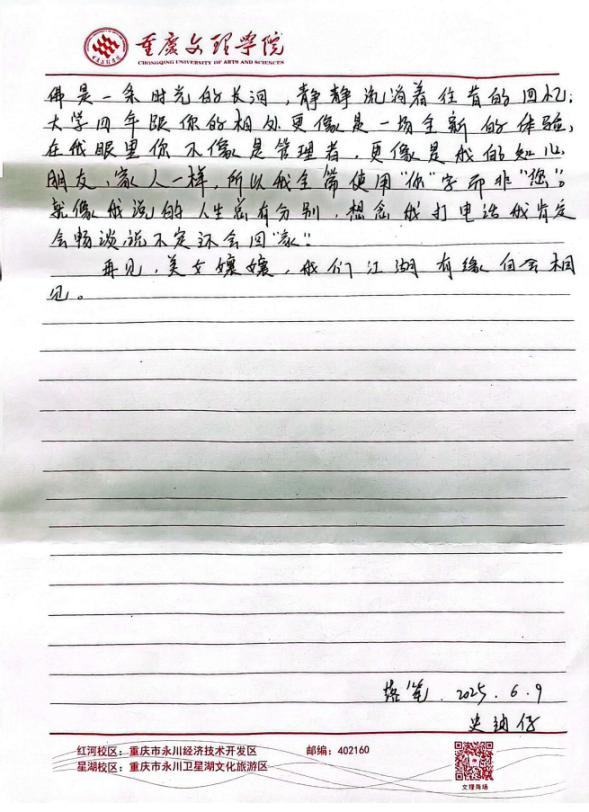 重庆文理学院
CHONGQING UNIVERSITY OF ARTS AND SCIENCES
佛是一条时光的长河，静静流淌着往昔的回忆；
大学四年跟你的相处更像是一场全新的体验，
在我眼里你不像是管理者，更像是我的知心
朋友、家人一样，所以我全篇使用“你”字而非“您”。
就像我说的人生总有分别，想念我打电话我肯定
会畅谈，说不定还会回“家”。
再见，美女嬢嬢，我们江湖有缘自会相
见。
落笔. 2025. 6. 9
史迪仔
红河校区：重庆市永川经济技术开发区
邮编：402160
星湖校区：重庆市永川卫星湖文化旅游区
文理商场